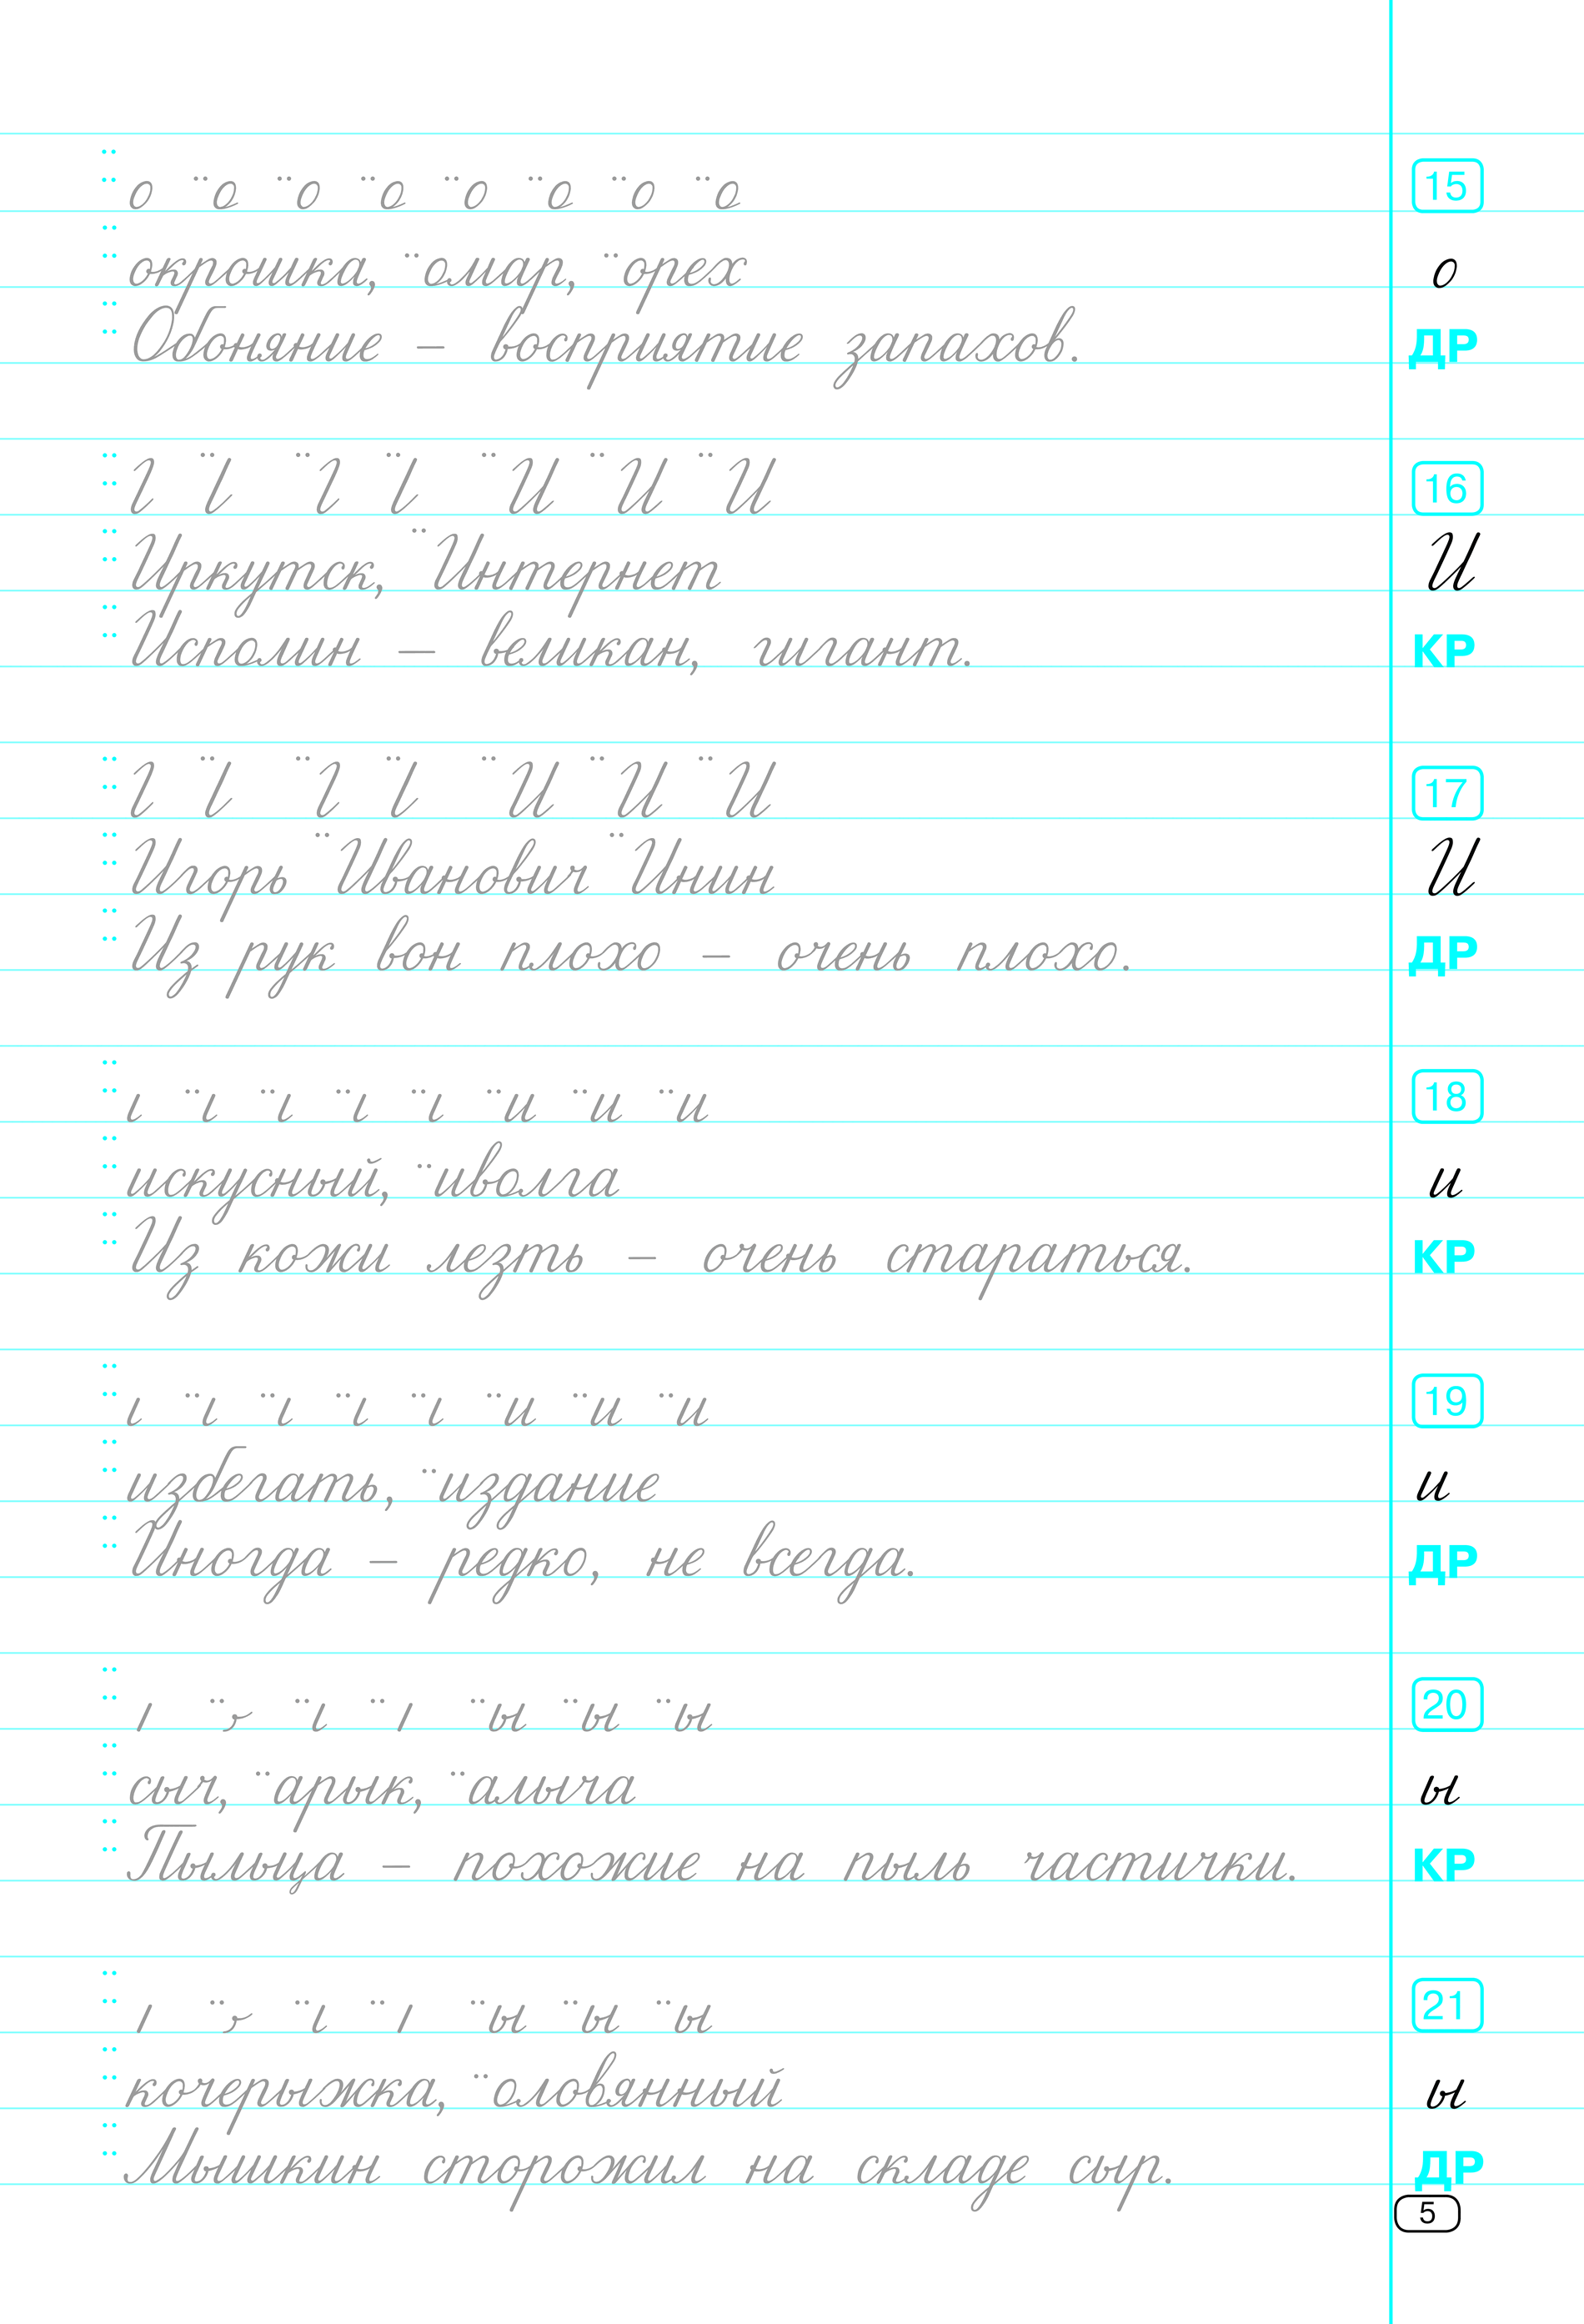 о о о о о о о о 15
окрошка, омар, орех о
Обоняние – восприятие запахов. ДР
И И И 16
Иркутск, Интернет И
Исполин — великан, гигант. КР
И И И 17
Игорь Иванович Инин И
Из рук вон плохо – очень плохо. ДР
и и и 18
искусный, иволга и
Из кожи лезть – очень стараться. КР
и и и 19
избегать, издание и
Иногда – редко, не всегда. ДР
ы ы ы 20
сыч, арык, алыча ы
Пыльца – похожие на пыль частички. КР
ы ы ы 21
кочерыжка, оловянный ы
Мышкин сторожил на складе сыр. ДР
5